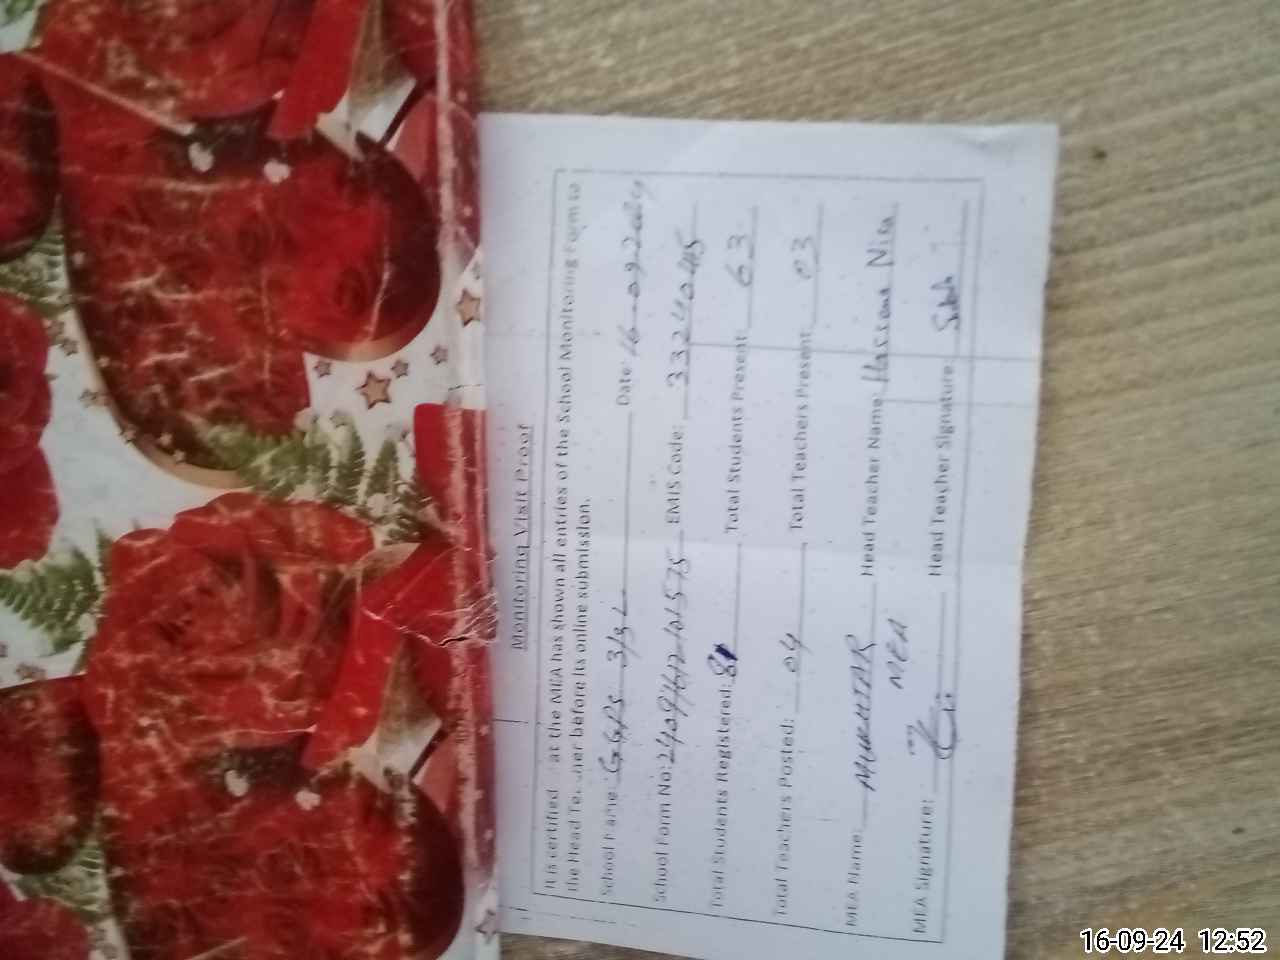 Monitoring Visit Proof
It is certified at the MEA has shown all entries of the School Monitoring Form to
the Head Te..her before its online submission.
School Name: GGPS 3/3L Date: 16-09-2024
School Form No: EMIS Code: 33240415
Total Students Registered: 81 Total Students Present: 63
Total Teachers Posted: 04 Total Teachers Present: 03
MEA Name: MUKHTAR Head Teacher Name: Hassana Nisa
MEA
MEA Signature: Head Teacher Signature:
16-09-24 12:52